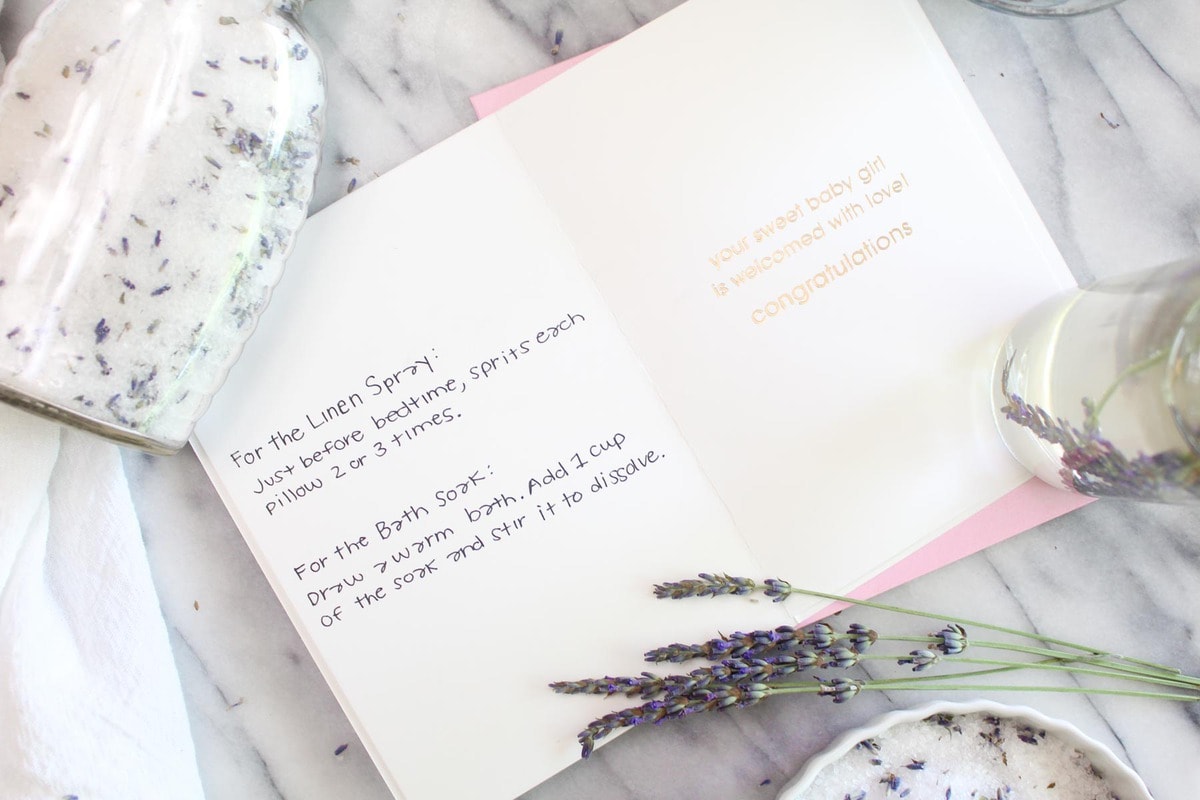 For the Linen Spray:
Just before bedtime, sprits each
pillow 2 or 3 times.
For the Bath Soak:
Draw a warm bath. Add 1 cup
of the soak and stir it to dissolve.
your sweet baby girl
is welcomed with love!
congratulations